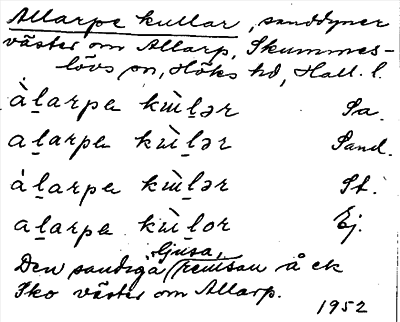 Allarpe kullar, sanddyner
väster om Allarp, Skummes-
lövs sn, Höks hd, Hall. l.
àl̠arpa kɯ̀l̠ər Sa.
al̠arpa kɯ̀l̠ər Sand.
àl̠arpa kɯ̀l̠ər St.
al̠arpa kɯ̀l̠or Ej.
ljusa,
Den sandiga remsan å ek
Sko väster om Allarp.
1952